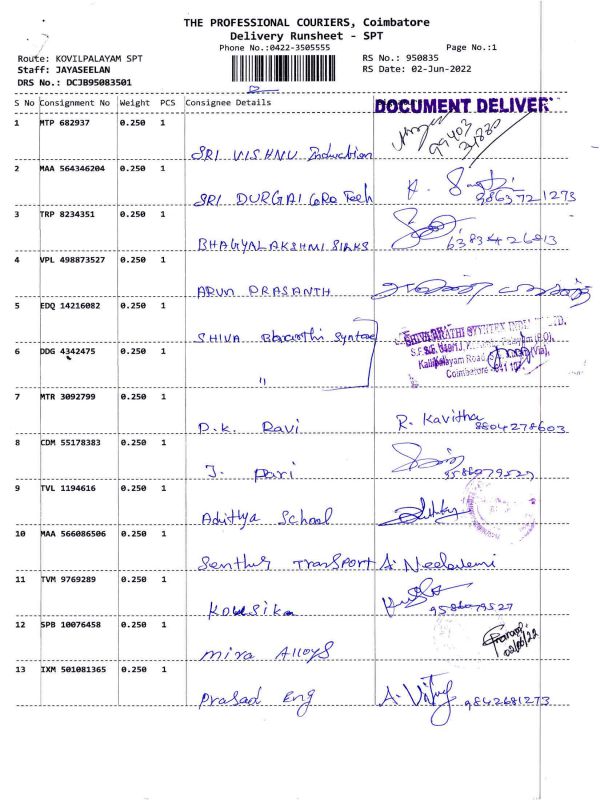 THE PROFESSIONAL COURIERS, Coimbatore
Delivery Runsheet - SPT
Phone No.:0422-3505555
Page No.:1
Route: KOVILPALAYAM SPT
RS No.: 950835
Staff: JAYASEELAN
RS Date: 02-Jun-2022
DRS No.: DCJB95083501
S No Consignment No Weight PCS Consignee Details
DOCUMENT DELIVER
1 MTP 682937 0.250 1
SRI VISHNU
2 MAA 564346204 0.250 1
SRI DURGAI Core Tech 9863721273
3 TRP 8234351 0.250 1
BHAGYALAKSHMI SILKS
4 VPL 498873527 0.250 1
ARUN PRASANTH
5 EDQ 14216082 0.250 1
SHIVA Bharathi Syntex
6 DDG 4342475 0.250 1
"
Coimbatore
7 MTR 3092799 0.250 1
P.K. Ravi R. Kavitha 8604278603
8 CDM 55178383 0.250 1
J. Pari 9586079527
9 TVL 1194616 0.250 1
Adithya School
10 MAA 566086506 0.250 1
Senthur TRANSPORT A. Neelaveni
11 TVM 9769289 0.250 1
Kousika 9586079527
12 SPB 10076458 0.250 1
Mira Alloys 02/06/22
13 IXM 501081365 0.250 1
Prasad Eng 9842681273